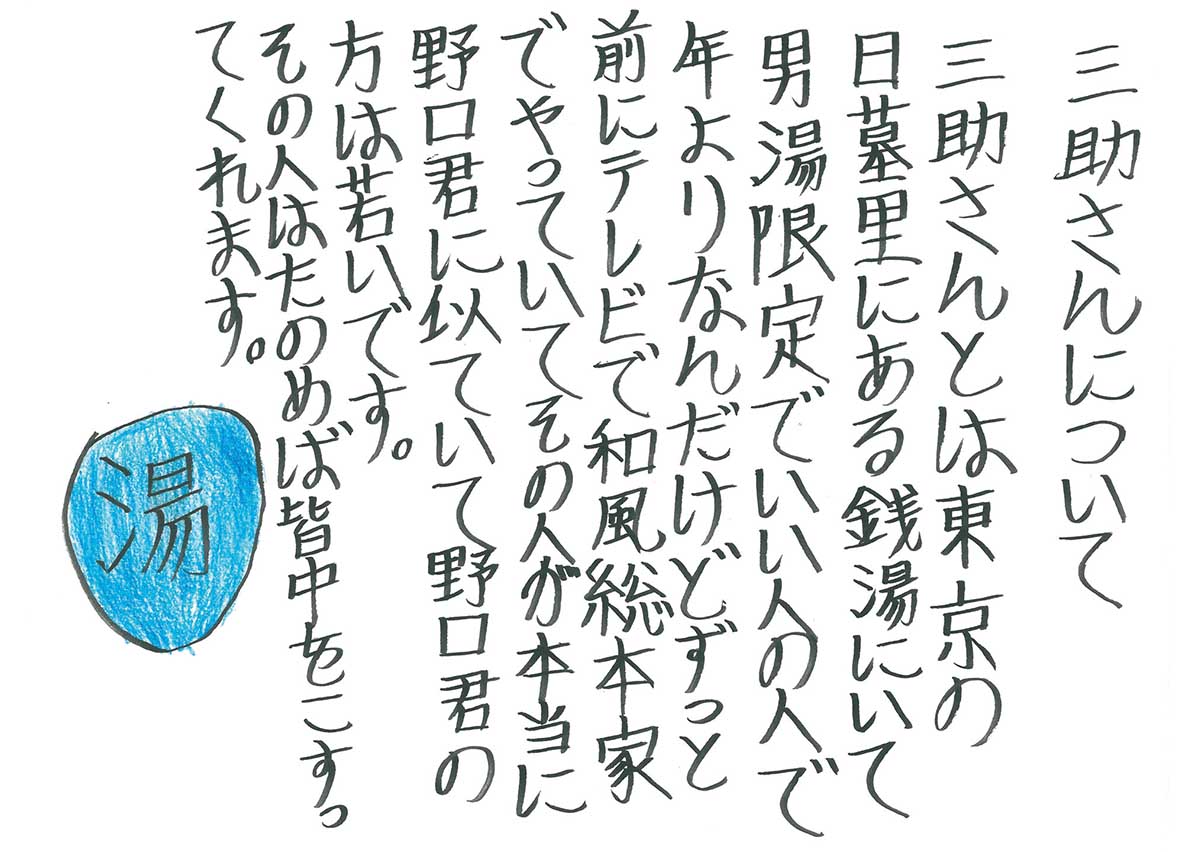 三助さんについて
三助さんとは東京の
日墓里にある銭湯にいて
男湯限定でいい人の人で
年よりなんだけどずっと
前にテレビで和風総本家
でやっていてその人が本当に
野口君に似ていて野口君の
方は若いです。
その人はたのめば皆中をこすっ
てくれます。
湯